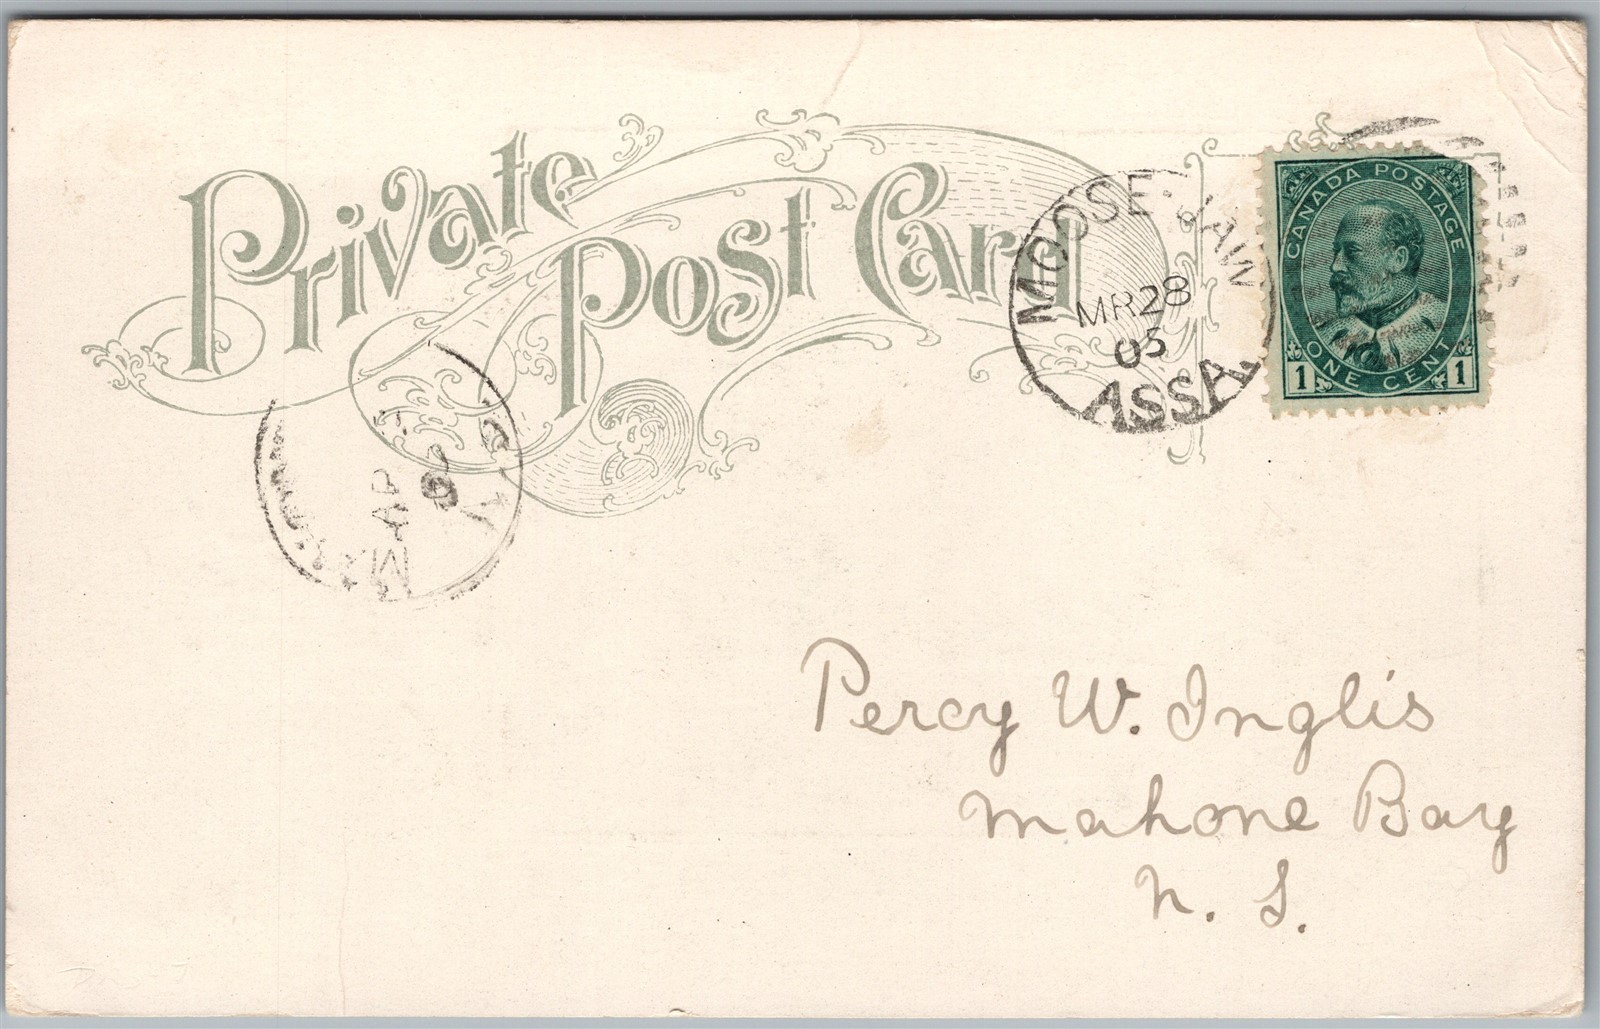 Private Post Card
MOOSE·JAW
MR 28
05
ASSA.
CANADA POSTAGE
ONE CENT
1 1
AP
Percy W. Inglis
Mahone Bay
N. S.